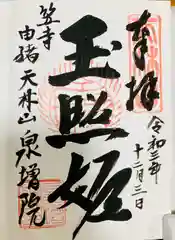 奉拝
令和三年
十一月三日
玉照姫
笠寺
由緒
天林山
泉増院